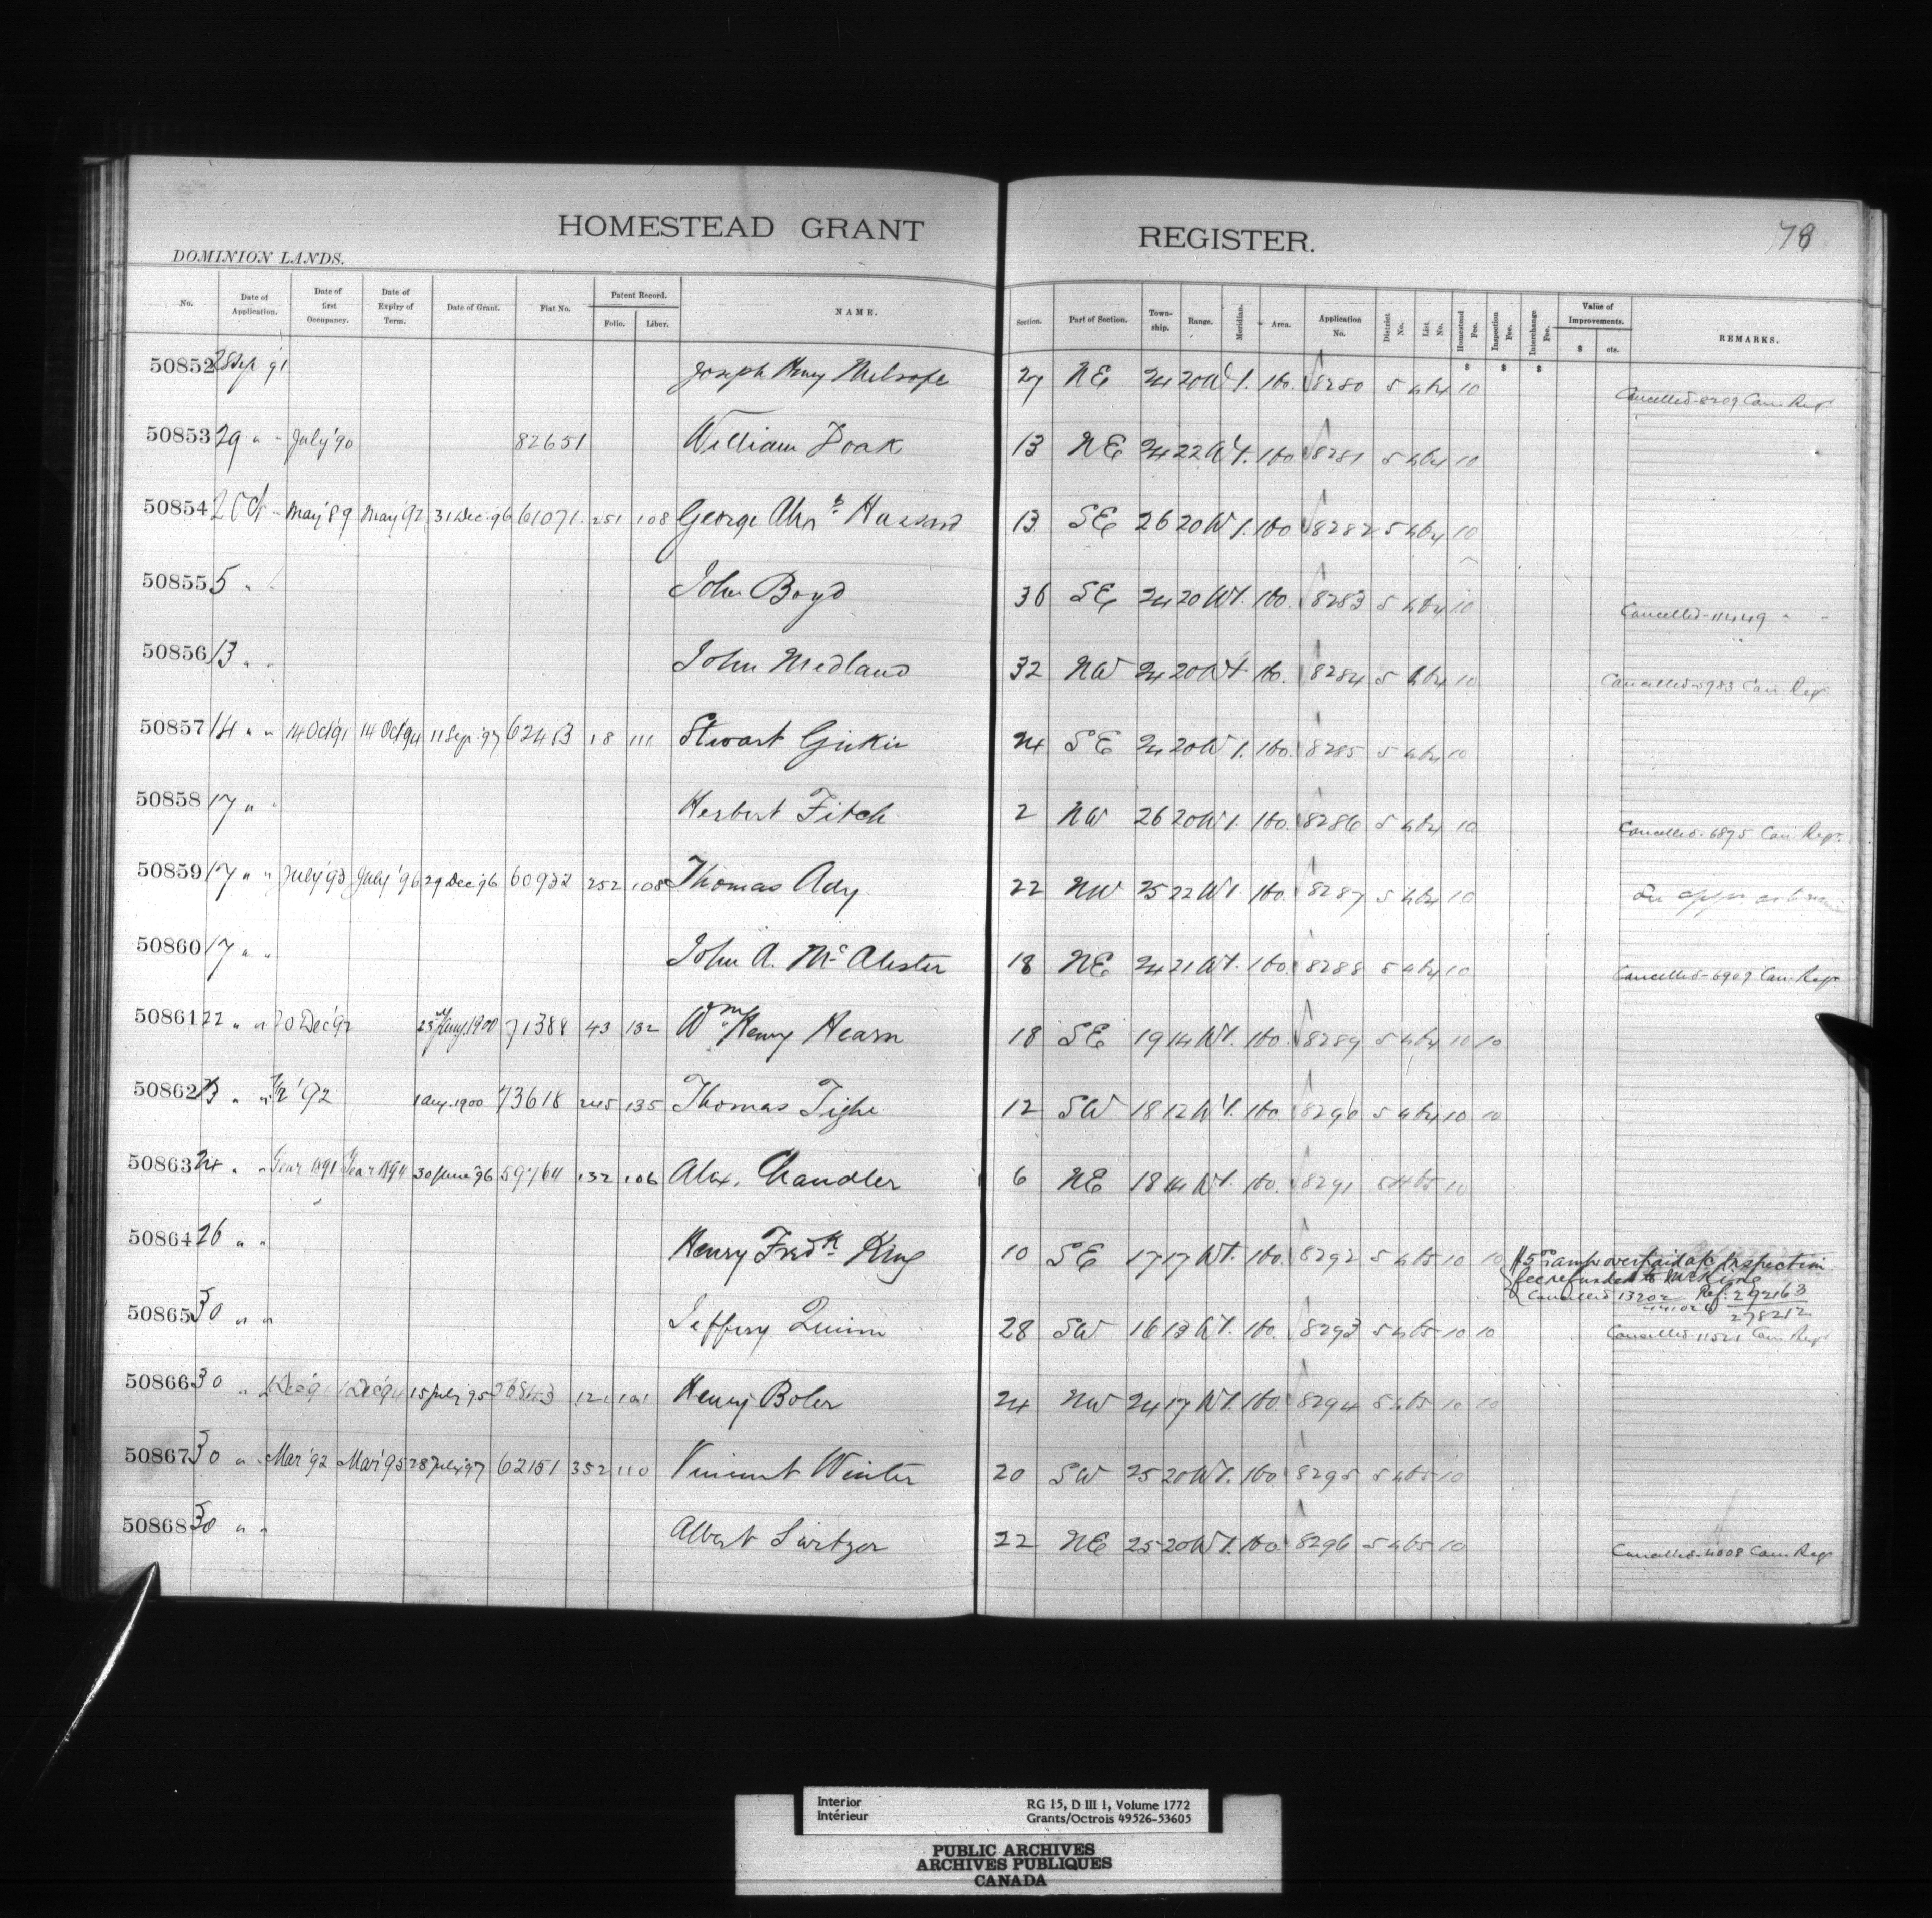 HOMESTEAD GRANT REGISTER. 78
DOMINION LANDS.
No. Date of Application. Date of first Occupancy. Date of Expiry of Term. Date of Grant. Fiat No. Patent Record. Folio. Liber. NAME. Section. Part of Section. Township. Range. Meridian. Area. Application No. District No. List No. Homestead Fee. Inspection Fee. Interchange Fee. Value of Improvements. $ cts. REMARKS.
$ $ $
50852 28 Sep 91 Joseph Henry 27 NE 24 20 W1. 160. 8280 5 464 10 Cancelled - 8209 Can. Regr
50853 29 " " July '90 82651 William Doak 13 NE 24 22 W1. 160 8281 5 464 10
50854 2 Oct " May '89 May '92 31 Dec. 96 61071. 251 108 George 13 SE 26 20 W1. 160 8282 5 464 10
50855 5 " " John Boyd 36 SE 24 20 W1. 160. 8283 5 464 10 Cancelled - 11449 " "
50856 13 " " John Medland 32 NW 24 20 W1 160. 8284 5 464 10 Cancelled - 5983 Can Reg.
50857 14 " " 14 Oct 91 14 Oct 94 11 Sep. 97 62413 18 111 Stewart 24 SE 24 20 W1. 160. 8285 5 464 10
50858 17 " " Herbert Fitch 2 NW 26 20 W1. 160. 8286 5 464 10 Cancelled - 6875 Can Regr.
50859 17 " " July '93 July '96 29 Dec '96 60932 252 108 Thomas Ady 22 NW 25 22 W1. 160. 8287 5 464 10
50860 17 " " John A. Mc Alister 18 NE 24 21 W1. 160. 8288 5 464 10 Cancelled - 6909 Can Regr
50861 22 " " 20 Dec '92 1900 71388 43 132 Wm Henry Hearn 18 SE 19 14 W1. 160. 8289 5 464 10 10
50862 23 " " '92 1 Aug. 1900 73618 245 135 Thomas Tighe 12 SW 18 12 W1. 160. 8290 5 464 10 10
50863 24 " " Year 1891 Year 1894 30 June '96 59764 132 106 Alex. Chandler 6 NE 18 14 W1. 160. 8291 5 465 10
50864 26 " " Henry Fredk King 10 SE 17 17 W1. 160. 8292 5 465 10 10 $5.00 overpaid a/c Inspection
fee refunded to Mr King
Cancelled 13202 Ref. 292163
278212
50865 30 " " Jeffery Quinn 28 SW 16 13 W1. 160. 8293 5 465 10 10 Cancelled - 11521 Can Regr
50866 30 " 1 Dec '91 1 Dec '94 15 July '95 121 101 Henry Boler 24 NW 24 17 W1. 160. 8294 5 465 10 10
50867 30 " " Mar '92 Mar '95 28 July '97 62151 352 110 Vincent Winter 20 SW 25 20 W1. 160 8295 5 465 10
50868 30 " " Albert 22 NE 25 20 W1. 160. 8296 5 465 10 Cancelled - 4008 Can Regr
Interior RG 15, D III 1, Volume 1772
Intérieur Grants/Octrois 49526-53605
PUBLIC ARCHIVES
ARCHIVES PUBLIQUES
CANADA